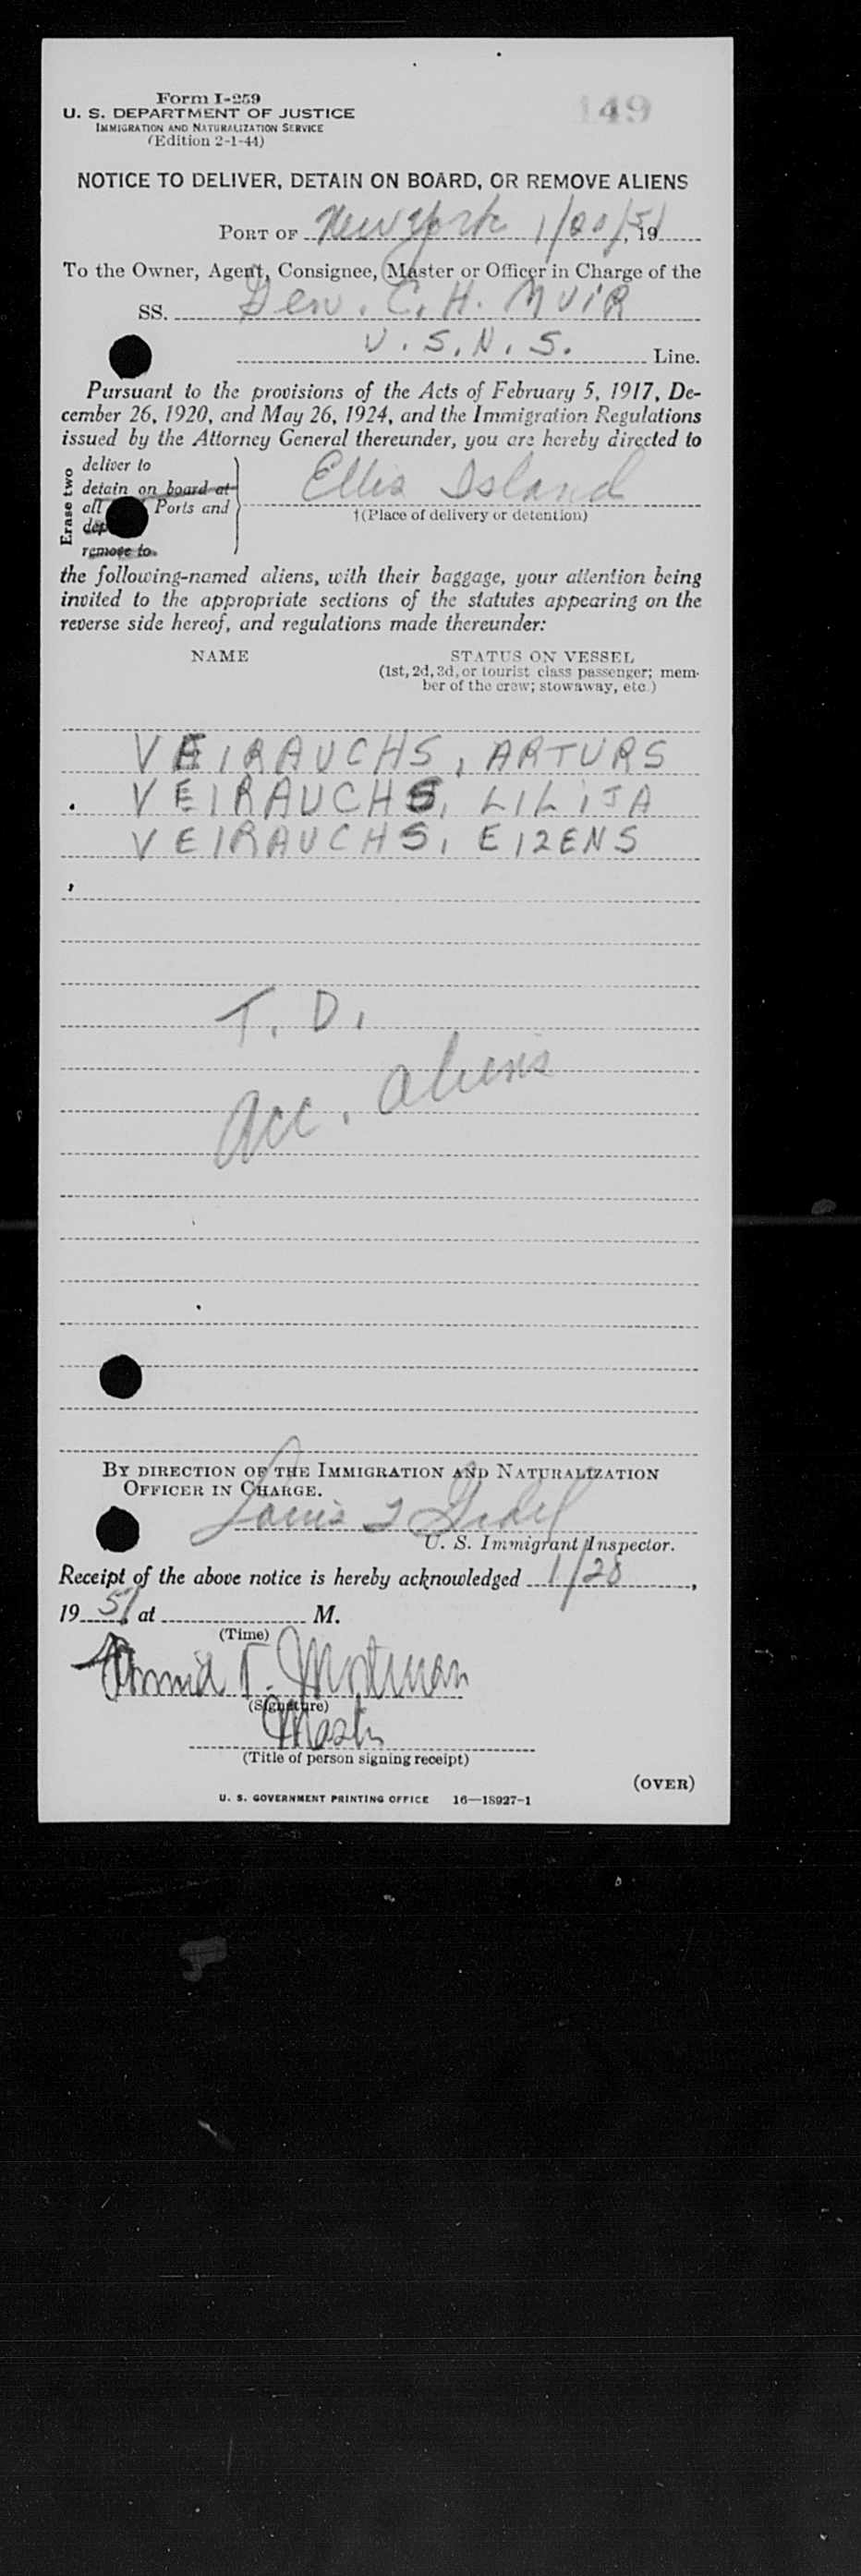 Form I-259
149
U. S. DEPARTMENT OF JUSTICE
IMMIGRATION AND NATURALIZATION SERVICE
(Edition 2-1-44)
NOTICE TO DELIVER, DETAIN ON BOARD, OR REMOVE ALIENS
PORT OF New York 1/ /51, 19
To the Owner, Agent, Consignee, Master or Officer in Charge of the
SS. Gen. C. H. MUIR
U. S. N. S. Line.
Pursuant to the provisions of the Acts of February 5, 1917, De-
cember 26, 1920, and May 26, 1924, and the Immigration Regulations
issued by the Attorney General thereunder, you are hereby directed to
Erase two
deliver to
detain on board at
all Ports and
dep
remove to
Ellis Island
†(Place of delivery or detention)
the following-named aliens, with their baggage, your attention being
invited to the appropriate sections of the statutes appearing on the
reverse side hereof, and regulations made thereunder:
NAME STATUS ON VESSEL
(1st, 2d, 3d, or tourist class passenger; mem-
ber of the crew; stowaway, etc.)
VEIRAUCHS, ARTURS
VEIRAUCHS, LILIJA
VEIRAUCHS, EIZENS
T. D.
Acc. aliens
BY DIRECTION OF THE IMMIGRATION AND NATURALIZATION
OFFICER IN CHARGE.
Louis
U. S. Immigrant Inspector.
Receipt of the above notice is hereby acknowledged 1/28,
1951, at M.
(Time)
(Signature)
Master
(Title of person signing receipt)
(OVER)
U. S. GOVERNMENT PRINTING OFFICE 16—18927-1